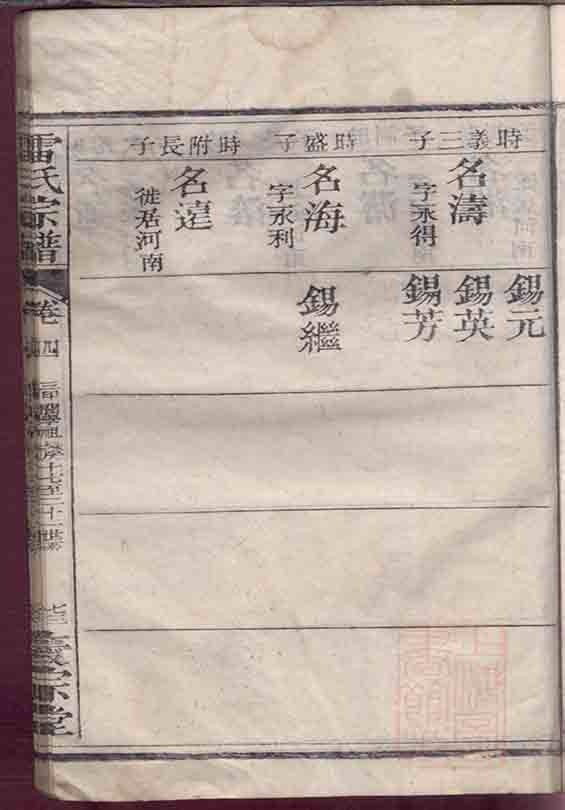 時義三子
名濤
字永得
錫元
錫英
錫芳
時盛子
名海
字永利
錫繼
時附長子
名達
徙居河南
雷氏宗譜
卷四